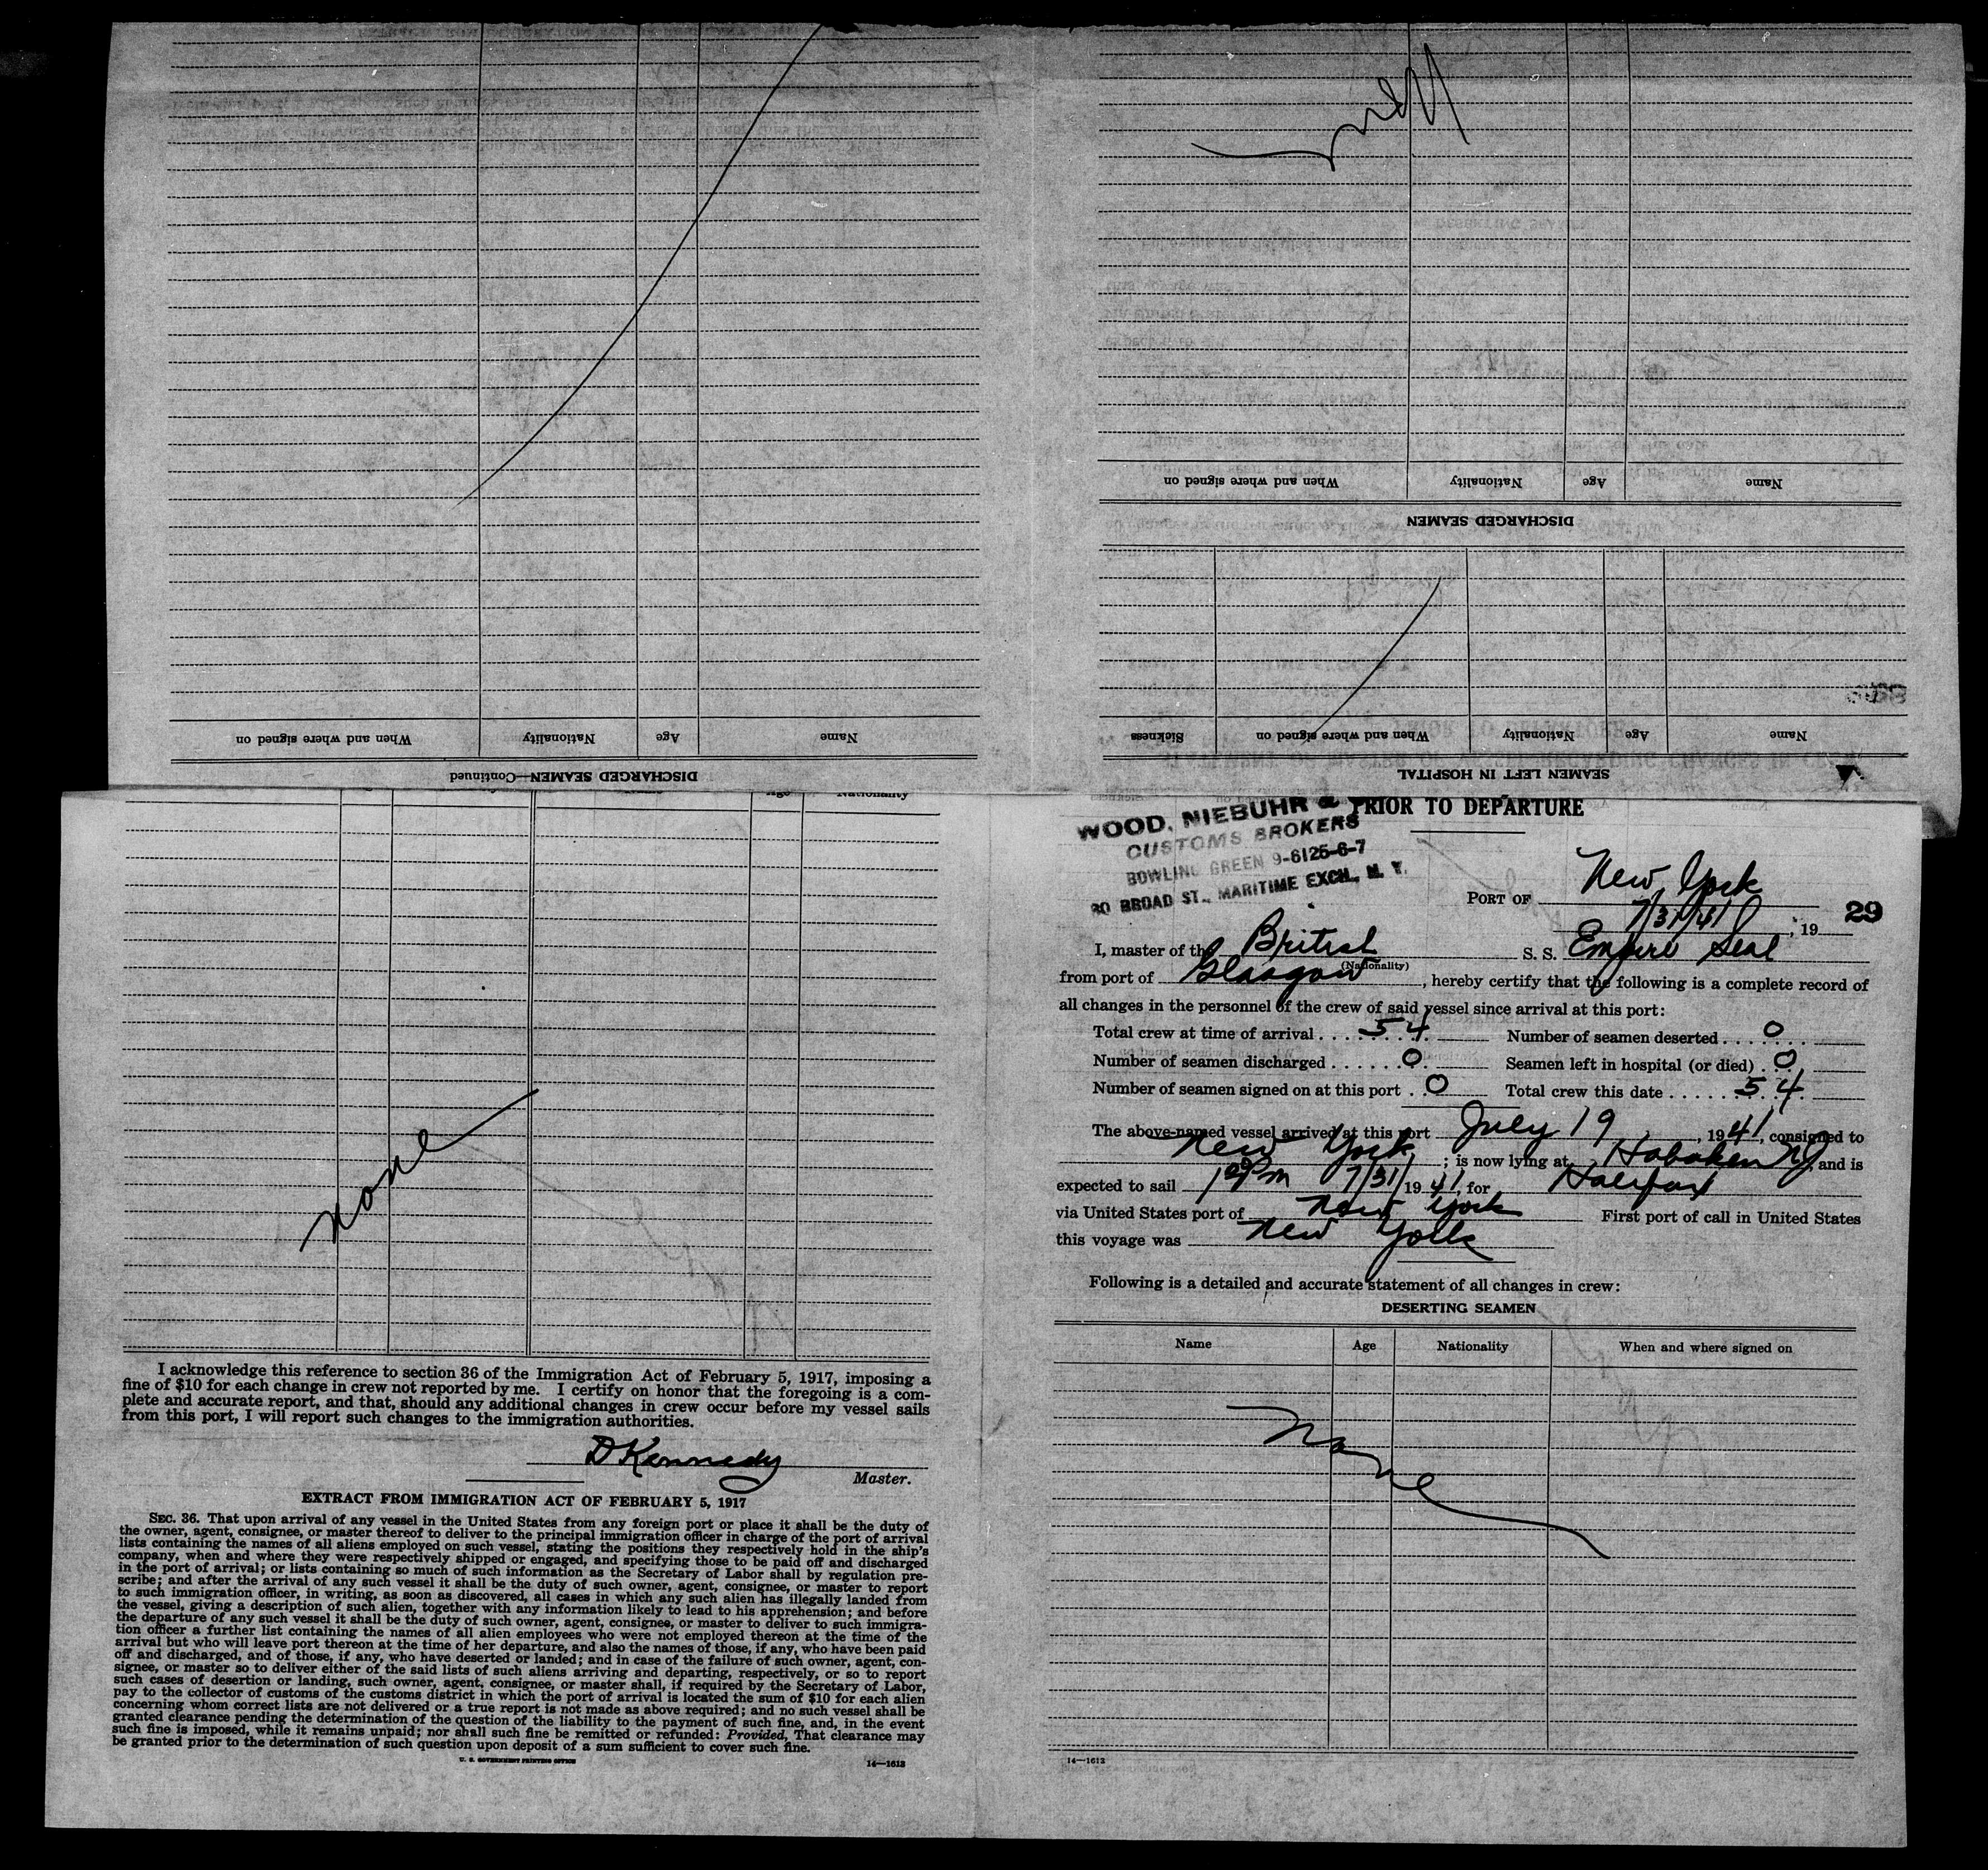 DISCHARGED SEAMEN—Continued
Name Age Nationality When and where signed on
SEAMEN LEFT IN HOSPITAL
Name Age Nationality When and where signed on Sickness
DISCHARGED SEAMEN
Name Age Nationality When and where signed on
None
Age Nationality
None
I acknowledge this reference to section 36 of the Immigration Act of February 5, 1917, imposing a
fine of $10 for each change in crew not reported by me. I certify on honor that the foregoing is a com-
plete and accurate report, and that, should any additional changes in crew occur before my vessel sails
from this port, I will report such changes to the immigration authorities.
D Kennedy
Master.
EXTRACT FROM IMMIGRATION ACT OF FEBRUARY 5, 1917
SEC. 36. That upon arrival of any vessel in the United States from any foreign port or place it shall be the duty of
the owner, agent, consignee, or master thereof to deliver to the principal immigration officer in charge of the port of arrival
lists containing the names of all aliens employed on such vessel, stating the positions they respectively hold in the ship's
company, when and where they were respectively shipped or engaged, and specifying those to be paid off and discharged
in the port of arrival; or lists containing so much of such information as the Secretary of Labor shall by regulation pre-
scribe; and after the arrival of any such vessel it shall be the duty of such owner, agent, consignee, or master to report
to such immigration officer, in writing, as soon as discovered, all cases in which any such alien has illegally landed from
the vessel, giving a description of such alien, together with any information likely to lead to his apprehension; and before
the departure of any such vessel it shall be the duty of such owner, agent, consignee, or master to deliver to such immigra-
tion officer a further list containing the names of all alien employees who were not employed thereon at the time of the
arrival but who will leave port thereon at the time of her departure, and also the names of those, if any, who have been paid
off and discharged, and of those, if any, who have deserted or landed; and in case of the failure of such owner, agent, con-
signee, or master so to deliver either of the said lists of such aliens arriving and departing, respectively, or so to report
such cases of desertion or landing, such owner, agent, consignee, or master shall, if required by the Secretary of Labor,
pay to the collector of customs of the customs district in which the port of arrival is located the sum of $10 for each alien
concerning whom correct lists are not delivered or a true report is not made as above required; and no such vessel shall be
granted clearance pending the determination of the question of the liability to the payment of such fine, and, in the event
such fine is imposed, while it remains unpaid; nor shall such fine be remitted or refunded: Provided, That clearance may
be granted prior to the determination of such question upon deposit of a sum sufficient to cover such fine.
U. S. GOVERNMENT PRINTING OFFICE 14—1613
PRIOR TO DEPARTURE
WOOD, NIEBUHR &
CUSTOMS BROKERS
BOWLING GREEN 9-6125-6-7
80 BROAD ST., MARITIME EXCH., N. Y.
PORT OF New York
7/31/41, 19 29
I, master of the British S. S. Empire Seal
(Nationality)
from port of Glasgow, hereby certify that the following is a complete record of
all changes in the personnel of the crew of said vessel since arrival at this port:
Total crew at time of arrival 54 Number of seamen deserted 0
Number of seamen discharged 0 Seamen left in hospital (or died) 0
Number of seamen signed on at this port 0 Total crew this date 54
The above-named vessel arrived at this port July 19, 1941, consigned to
New York; is now lying at Hoboken NJ and is
expected to sail 1 00 Pm 7/31/1941, for Halifax
via United States port of New York First port of call in United States
this voyage was New York
Following is a detailed and accurate statement of all changes in crew:
DESERTING SEAMEN
Name Age Nationality When and where signed on
None
14—1613